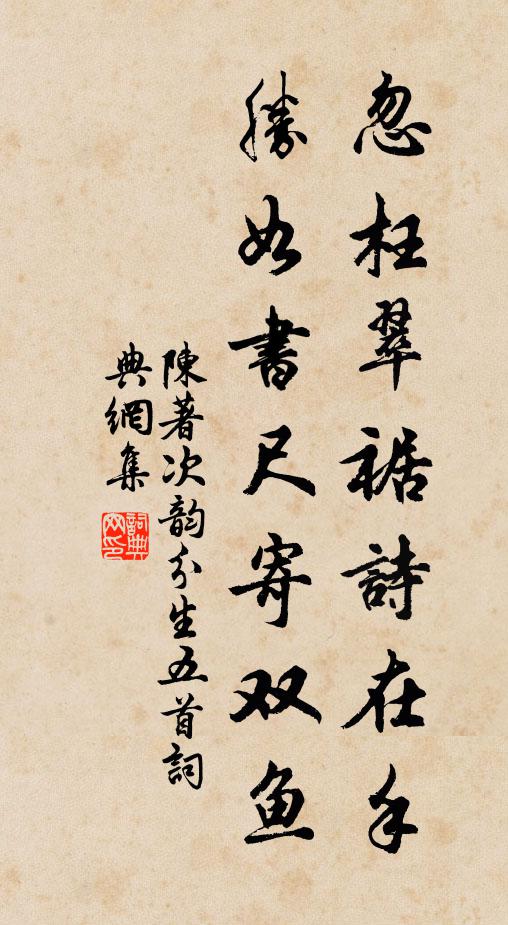 忽枉翠裾詩在手
勝如書尺寄双鱼
陳著次韵分生五首詞
典網集
詞典
网印